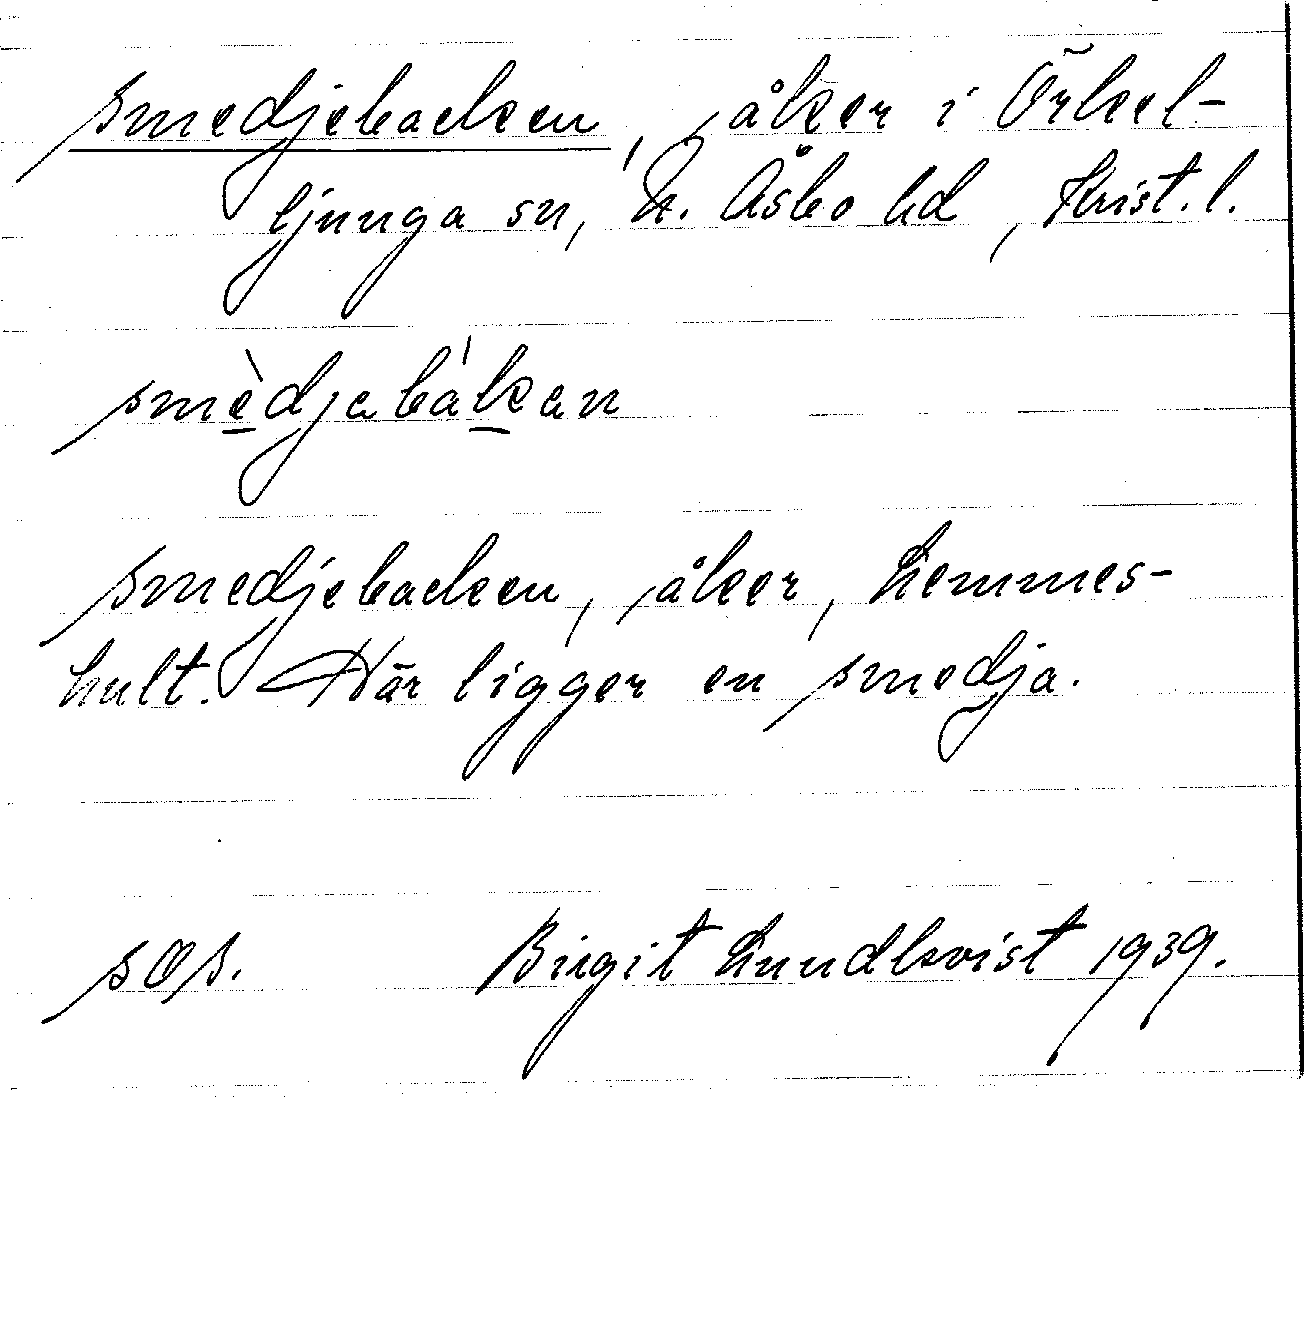 Smedjebacken, åker i Örkel-
ljunga sn, N. Åsbo hd, Krist. l.
smèdjabákan
Smedjebacken, åker, Lemmes-
hult. Här ligger en smedja.
SOS. Birgit Lundkvist 1939.